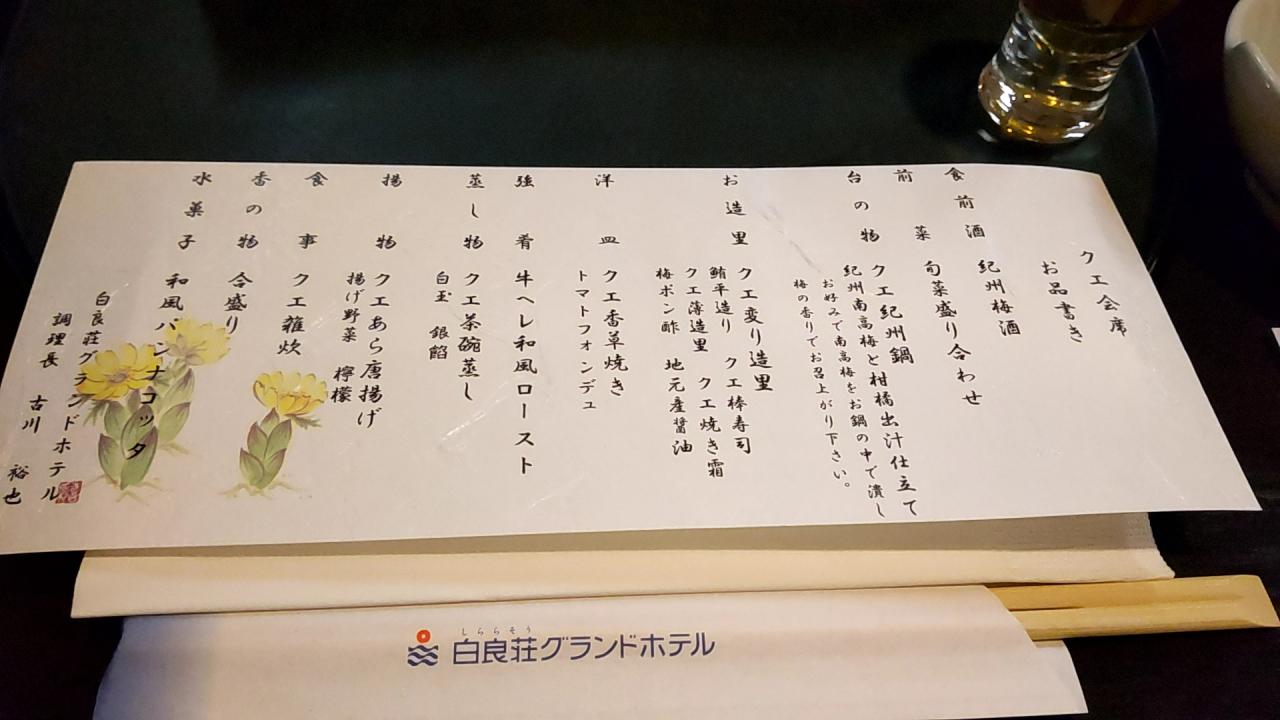 クエ会席
お品書き
食前酒 紀州梅酒
前菜 旬菜盛り合わせ
台の物 クエ紀州鍋
紀州南高梅と柑橘出汁仕立て
お好みで南高梅をお鍋の中で潰し
梅の香りでお召上がり下さい。
お造里 クエ変り造里
鮪平造り クエ棒寿司
クエ薄造里 クエ焼き霜
梅ポン酢 地元産醤油
洋皿 クエ香草焼き
トマトフォンデュ
強肴 牛ヘレ和風ロースト
蒸し物 クエ茶碗蒸し
白玉 銀餡
揚物 クエあら唐揚げ
揚げ野菜 檸檬
食事 クエ雑炊
香の物 合盛り
水菓子 和風パンナコッタ
白良荘グランドホテル
調理長 古川 裕也
しららそう
白良荘グランドホテル